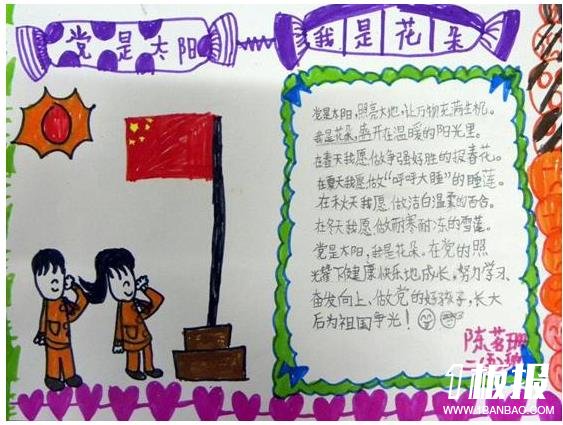 党是太阳
我是花朵
党是太阳,照亮大地,让万物充满生机。
我是花朵,盛开在温暖的阳光里。
在春天我愿做争强好胜的报春花。
在夏天我愿做“呼呼大睡”的睡莲。
在秋天我愿做洁白温柔的百合。
在冬天我愿做耐寒耐冻的雪莲。
党是太阳,我是花朵。在党的照
光耀下健康快乐地成长,努力学习、
奋发向上,做党的好孩子,长大
后为祖国争光!
陈茗珊
板报
WWW.1BANBAO.COM